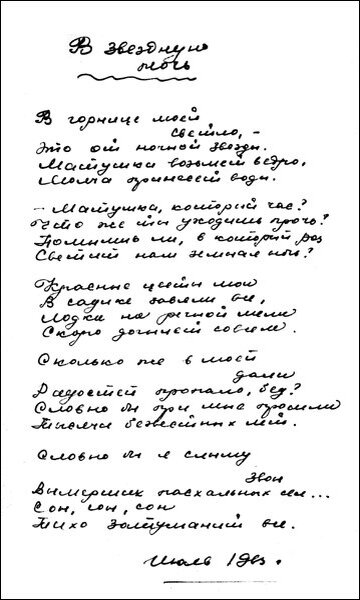 В звездную
ночь
В горнице моей
светло, –
Это от ночной звезды.
Матушка возьмет ведро,
Молча принесет воды.
– Матушка, который час?
Что же ты уходишь прочь?
Помнишь ли, в который раз
Светит нам земная ночь?
Красные цветы мои
В садике завяли все,
Лодка на речной мели
Скоро догниет совсем.
Сколько же в моей
дали
Радостей пропало, бед?
Словно бы при мне прошли
Тысячи безвестных лет.
Словно бы я слышу
звон
Вымерших пасхальных сел...
Сон, сон, сон
Тихо затуманит все.
Июль